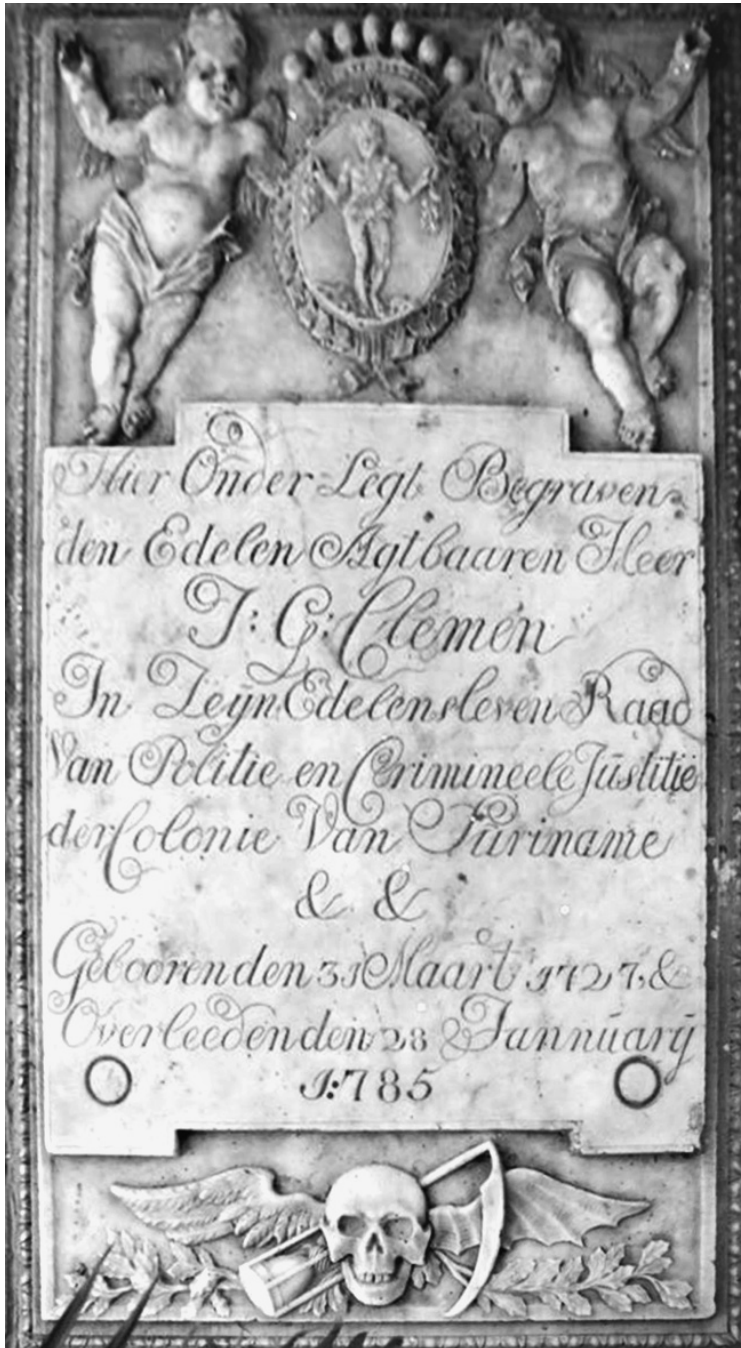 Hier Onder Legt Begraven
den Edelen Agtbaaren Heer
J: G: Clemen
In Zeÿn Edelens leven Raad
Van Politie en Crimineele Justitie
der Colonie Van Suriname
& &
Gebooren den 31 Maart 1727. &
Overleeden den 28 Jannuarÿ
1:785